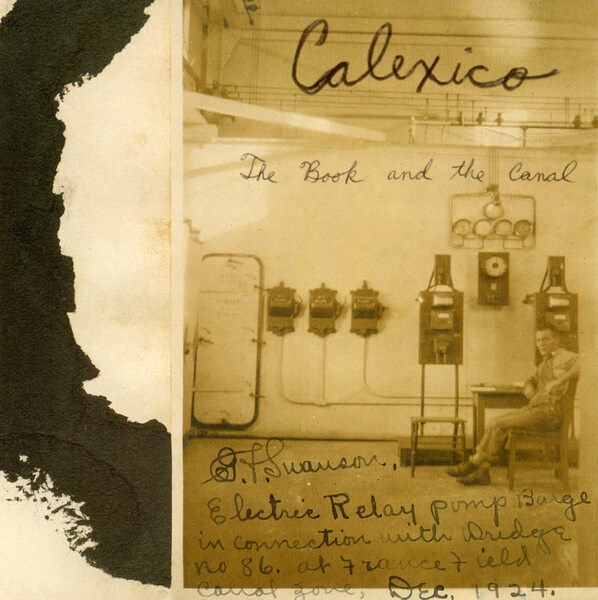 Calexico
The Book and the Canal
G.F. Swanson.
Electric Relay pump Barge
in connection with Dridge
no 86. at France Field
Canal zone, Dec, 1924.